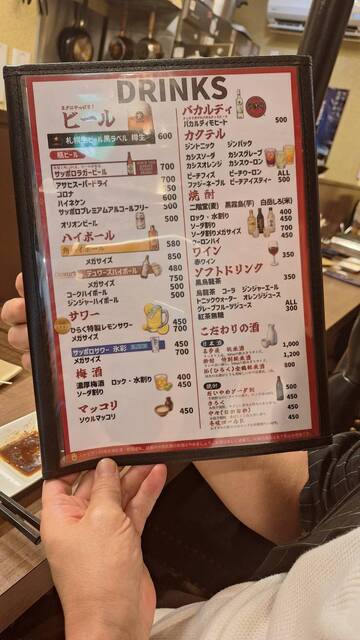 DRINKS
ビール
札幌生ビール黒ラベル 樽生 600
瓶ビール
サッポロラガービール 700
アサヒスーパードライ 700
コロナ
ハイネケン
サッポロプレミアムアルコールフリー 500
オリオンビール 500
ハイボール
580
メガサイズ 850
デュワーズハイボール 480
メガサイズ 750
コークハイボール 500
ジンジャーハイボール 500
サワー
ひらく特製レモンサワー 450
メガサイズ 700
サッポロサワー 氷彩 450
メガサイズ 700
梅酒
濃厚梅酒 ロック・水割り 400
ソーダ割り 450
マッコリ
ソウルマッコリ 450
バカルディ
バカルディモヒート 500
カクテル
ジントニック ジンバック
カシスソーダ カシスグレープ
カシスオレンジ カシスウーロン
ピーチフィズ ピーチウーロン ALL
ファジーネーブル ピーチアイスティー 500
焼酎
二階堂(麦) 黒霧島(芋) 白岳しろ(米)
ロック・水割り 400
ソーダ割り 450
ソーダ割りメガサイズ 700
ウーロンハイ 450
ワイン
赤ワイン 350
ソフトドリンク
黒烏龍茶 350
烏龍茶 コーラ ジンジャーエール
トニックウォーター オレンジジュース
グレープフルーツジュース ALL
紅茶無糖 300
こだわりの酒
日本酒
1,000
1,200
800
焼酎
だいやめソーダ割 500
450
450
450